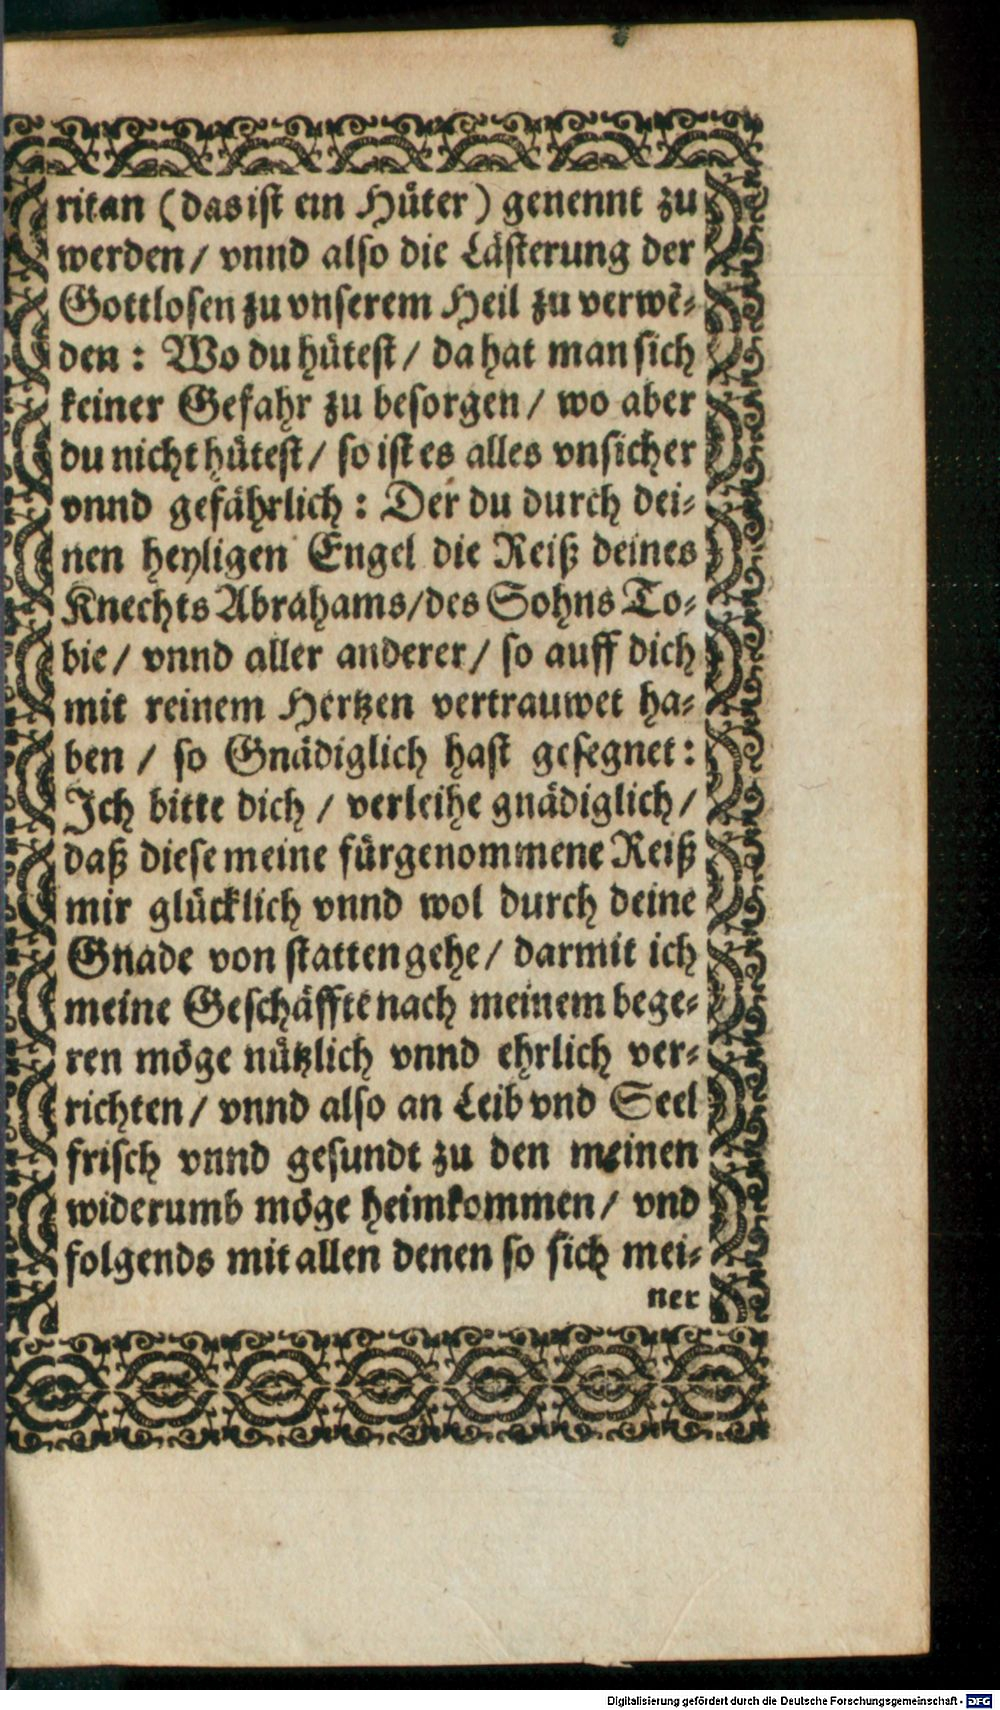 ritan (das ist ein Hüter) genennt zu
werden / vnnd also die Lästerung der
Gottlosen zu vnserem Heil zu verwẽ-
den : Wo du hütest / da hat man sich
keiner Gefahr zu besorgen / wo aber
du nicht hütest / so ist es alles vnsicher
vnnd gefährlich : Der du durch dei-
nen heyligen Engel die Reiß deines
Knechts Abrahams / des Sohns To-
bie / vnnd aller anderer / so auff dich
mit reinem Hertzen vertrauwet ha-
ben / so Gnädiglich hast gesegnet :
Ich bitte dich / verleihe gnädiglich /
daß diese meine fürgenommene Reiß
mir glücklich vnnd wol durch deine
Gnade von statten gehe / darmit ich
meine Geschäffte nach meinem bege-
ren möge nützlich vnnd ehrlich ver-
richten / vnnd also an Leib vnd Seel
frisch vnnd gesundt zu den meinen
widerumb möge heimkommen / vnd
folgends mit allen denen so sich mei-
ner
Digitalisierung gefördert durch die Deutsche Forschungsgemeinschaft - DFG